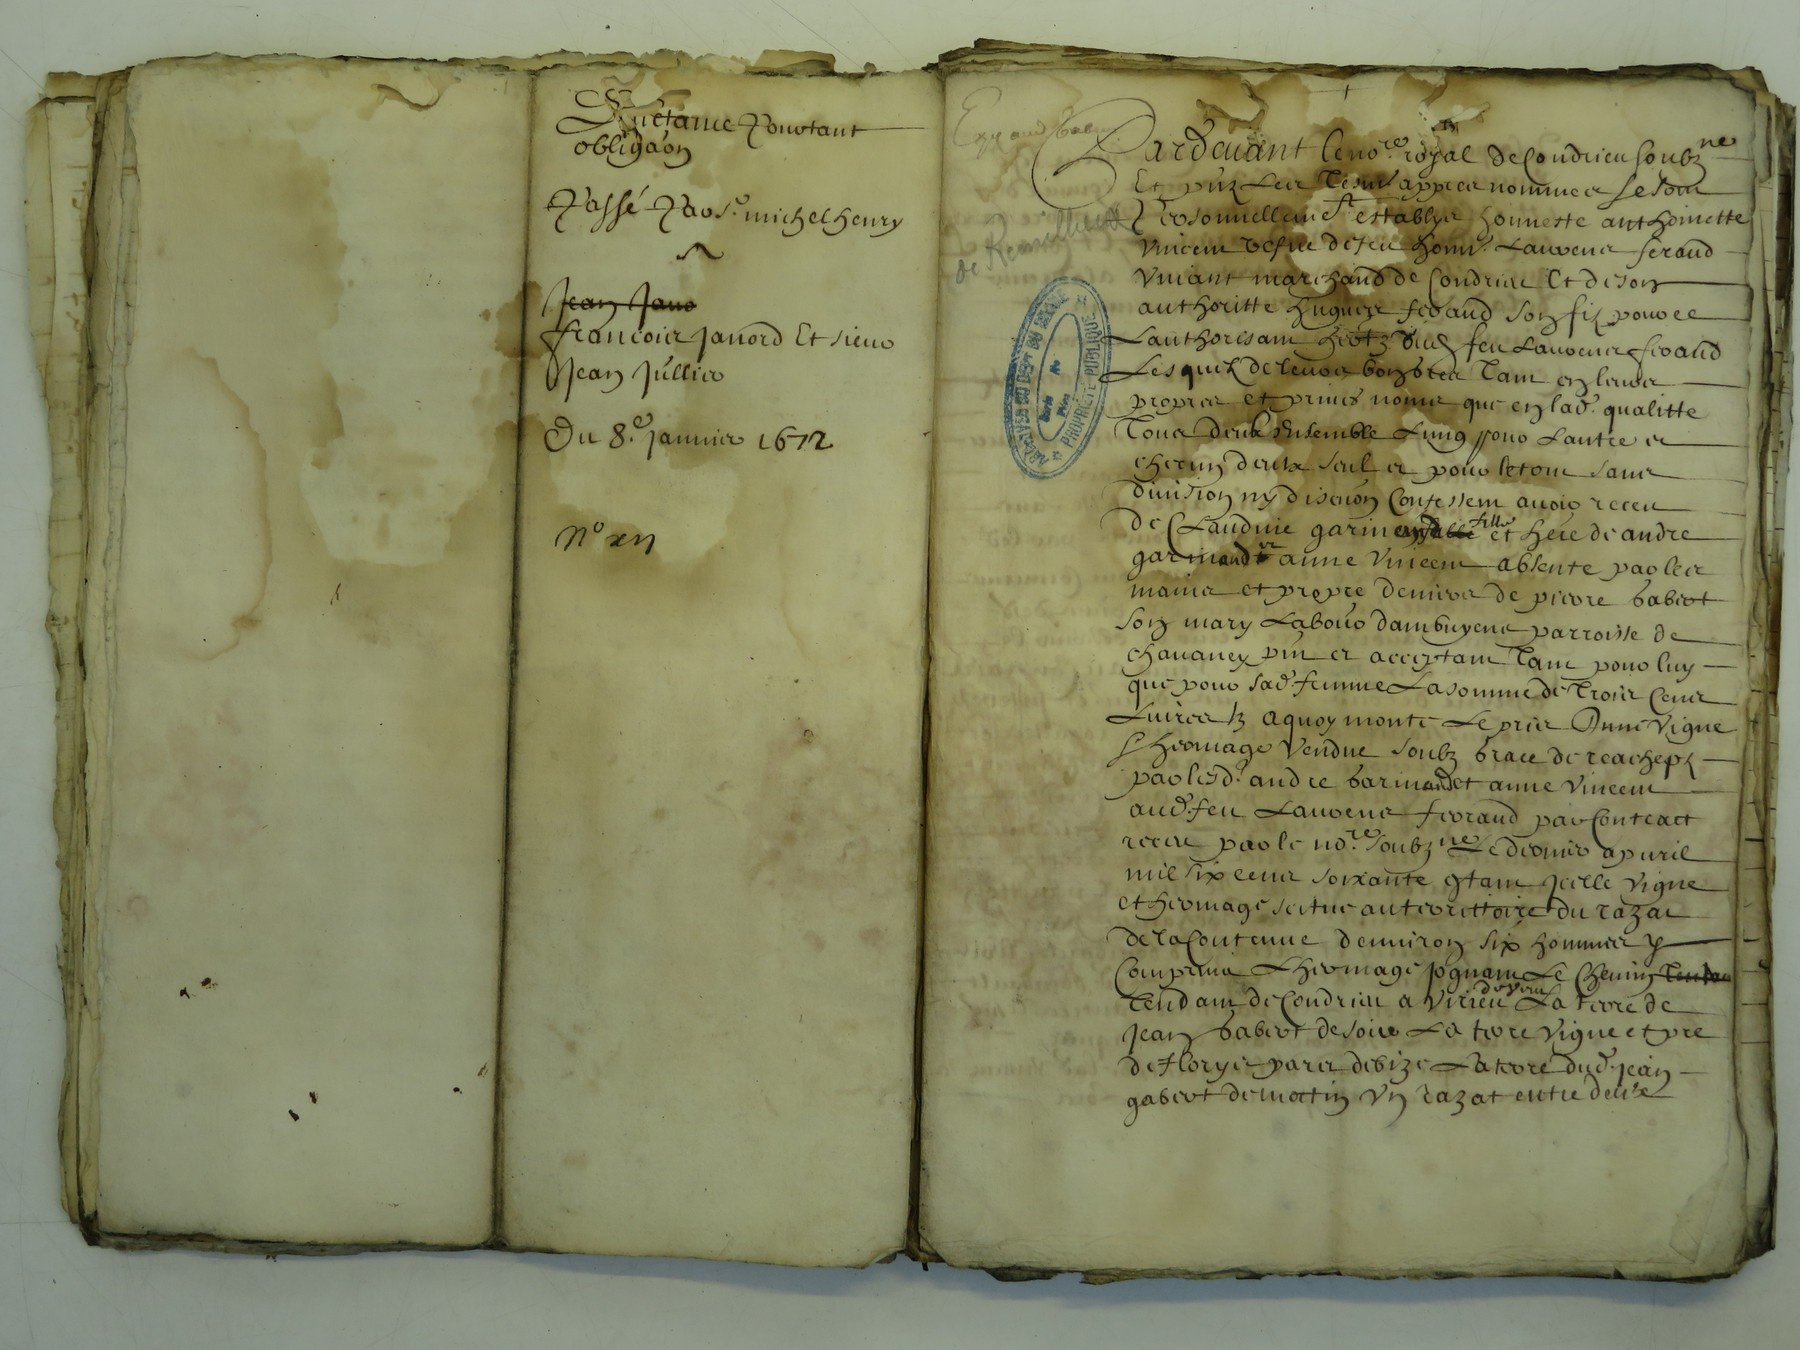 Quctance Portant
obliga͠on
Passé Par sr. michel henry
Jean Jano
francois Janord Et sieur
Jean Jullier
Du 8.e Janvier 1672
No xii
Pardevant le nore. royal de Condrieu soubzne
Et pnz Les Tesmz appres nommes se sont
Personnellemet establys honneste anthoinette
Vincent vefve de feu honn. Laurens feraud
Vivant marchand de Condrieu Et de son
authoritte hugues feraud son filz pour ce
Lauthorisant hertz dud. feu Laurens feraud
Lesquelz de leurs bon grés Tant en leurs
propres et privés noms que en lad. qualitte
Tous deux Ensemble Lung pour Lautre et
checun deux seul et pour letout sans
division ny discuon Confessent avoir receu
de Claudine garinand fille et here de andre
garinand et anne Vincent absente par les
mains et propre deniers de pierre gabert
son mary Labour dambuyens parroisse de
chavaney pnt et acceptant Tant pour luy
que pour sad. femme La somme de Trois Cens
Livres tz a quoy monte Le pris Dune Vigne
& hermage Vendue soubz grace de reachept
par lesd. andre garinand et anne Vincent
aud. feu Laurens feraud par Contract
receu par le nore. soubzne Le dernier apvril
mil six cens soixante estant Icelle Vigne
et hermage scitue au territtoire du razat
de la Contenue denviron six hommes y
Compris Lhermage Jognant Le Chemin
Tendant de Condrieu a Virieu La terre de
Jean gabert de soir La terre Vigne et pre
de florys pares de bize La terre dud. Jean
gabert de mattin Un razat entre deux
ARCHIVES DU DEPT DU RHONE
PROPRIETE PUBLIQUE